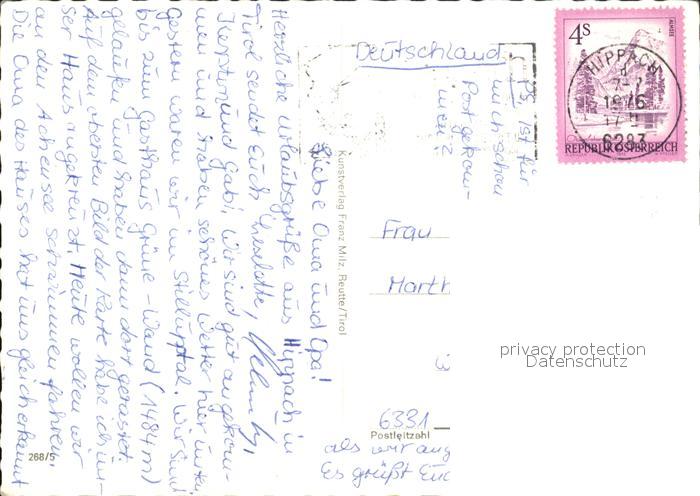 Liebe Oma und Opa!
Herzliche Urlaubsgrüße aus Hippach in
Tirol sendet Euch Lieselotte, Helmut,
Kerstin und Gabi. Wir sind gut angekom-
men und haben schönes Wetter hier. Unter
Gestern waren wir im Stilluptal. Wir sind
bis zum Gasthaus Grüne-Wand (1484 m)
gelaufen und haben dann dort gerastet.
Auf dem obersten Bild der Karte habe ich un-
ser Haus angekreuzt. Heute wollen wir
an den Achensee schwimmen fahren.
Die Oma des Hauses hat uns gleich erkannt
als wir ang
Es grüßt Euc
Deutschland
PS. Ist für
mich schon
Post gekom-
men?
Frau
Marth
6331
Postleitzahl
Kunstverlag Franz Milz, Reutte/Tirol
268/5
4S
ALMSEE
REPUBLIK ÖSTERREICH
HIPPACH
1976
6283
privacy protection
Datenschutz